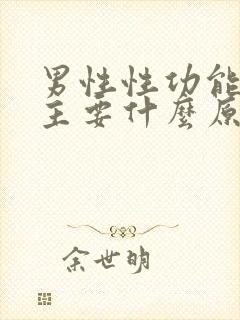 男性性功能
主要什麼原
余世明